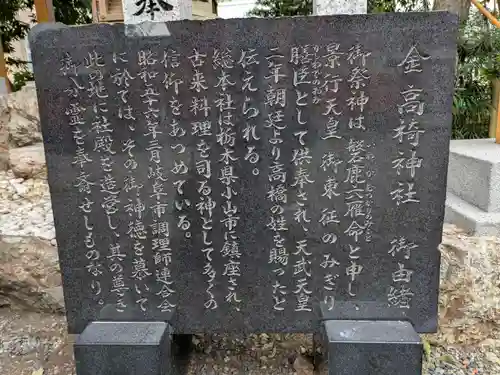 奉
金高椅神社　御由緒
御祭神は磐鹿六雁命と申し、
いわかむつかりのみこと
景行天皇御東征のみぎり
膳臣として供奉され、天武天皇
かしわでのおみ
二年朝廷より高橋の姓を賜ったと
伝えられる。
総本社は栃木県小山市に鎮座され、
古来料理を司る神として多くの
信仰をあつめている。
昭和五十六年三月岐阜市調理師連合会
に於ては、その御神徳を慕いて
此の地に社殿を造営し、其の尊き
御分霊を奉斎せしものなり。